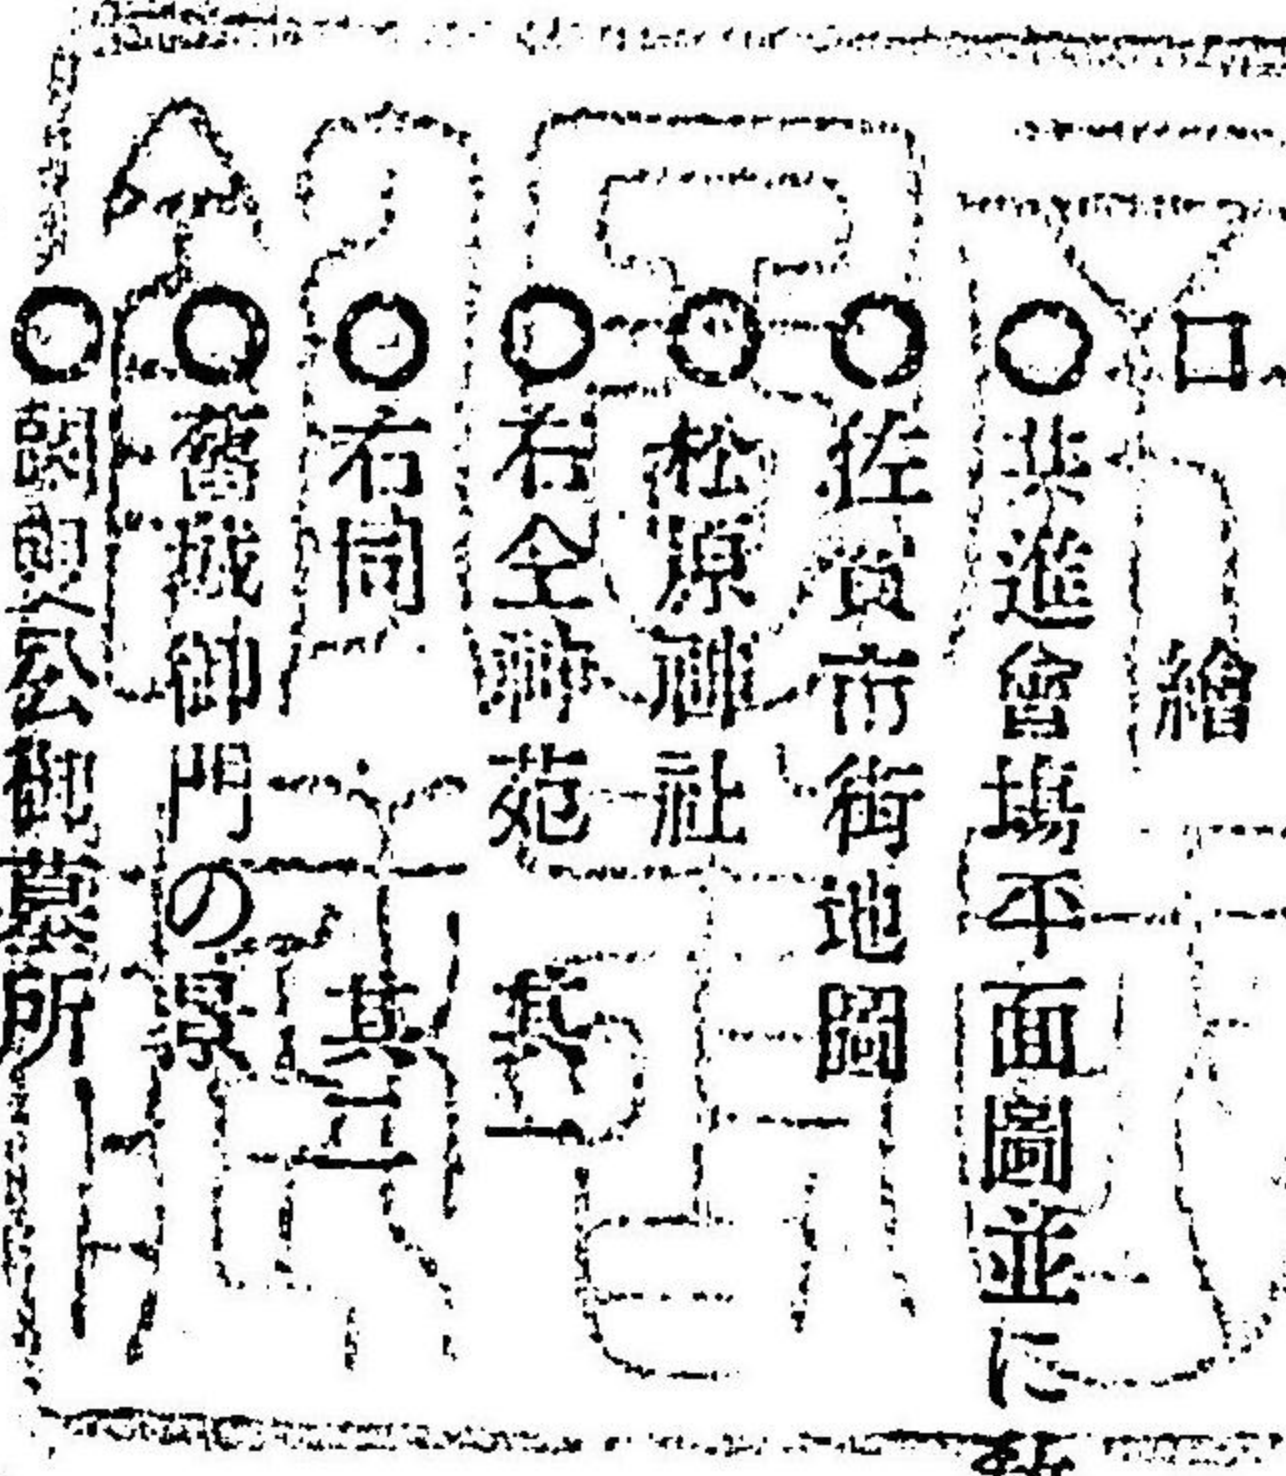 □ 繪
○共進會塲平面圖並に
○佐賀市街地圖
○松原神社
○右仝神苑 其一
○右同 其二
○舊城御門の景
○閑叟公御墓所